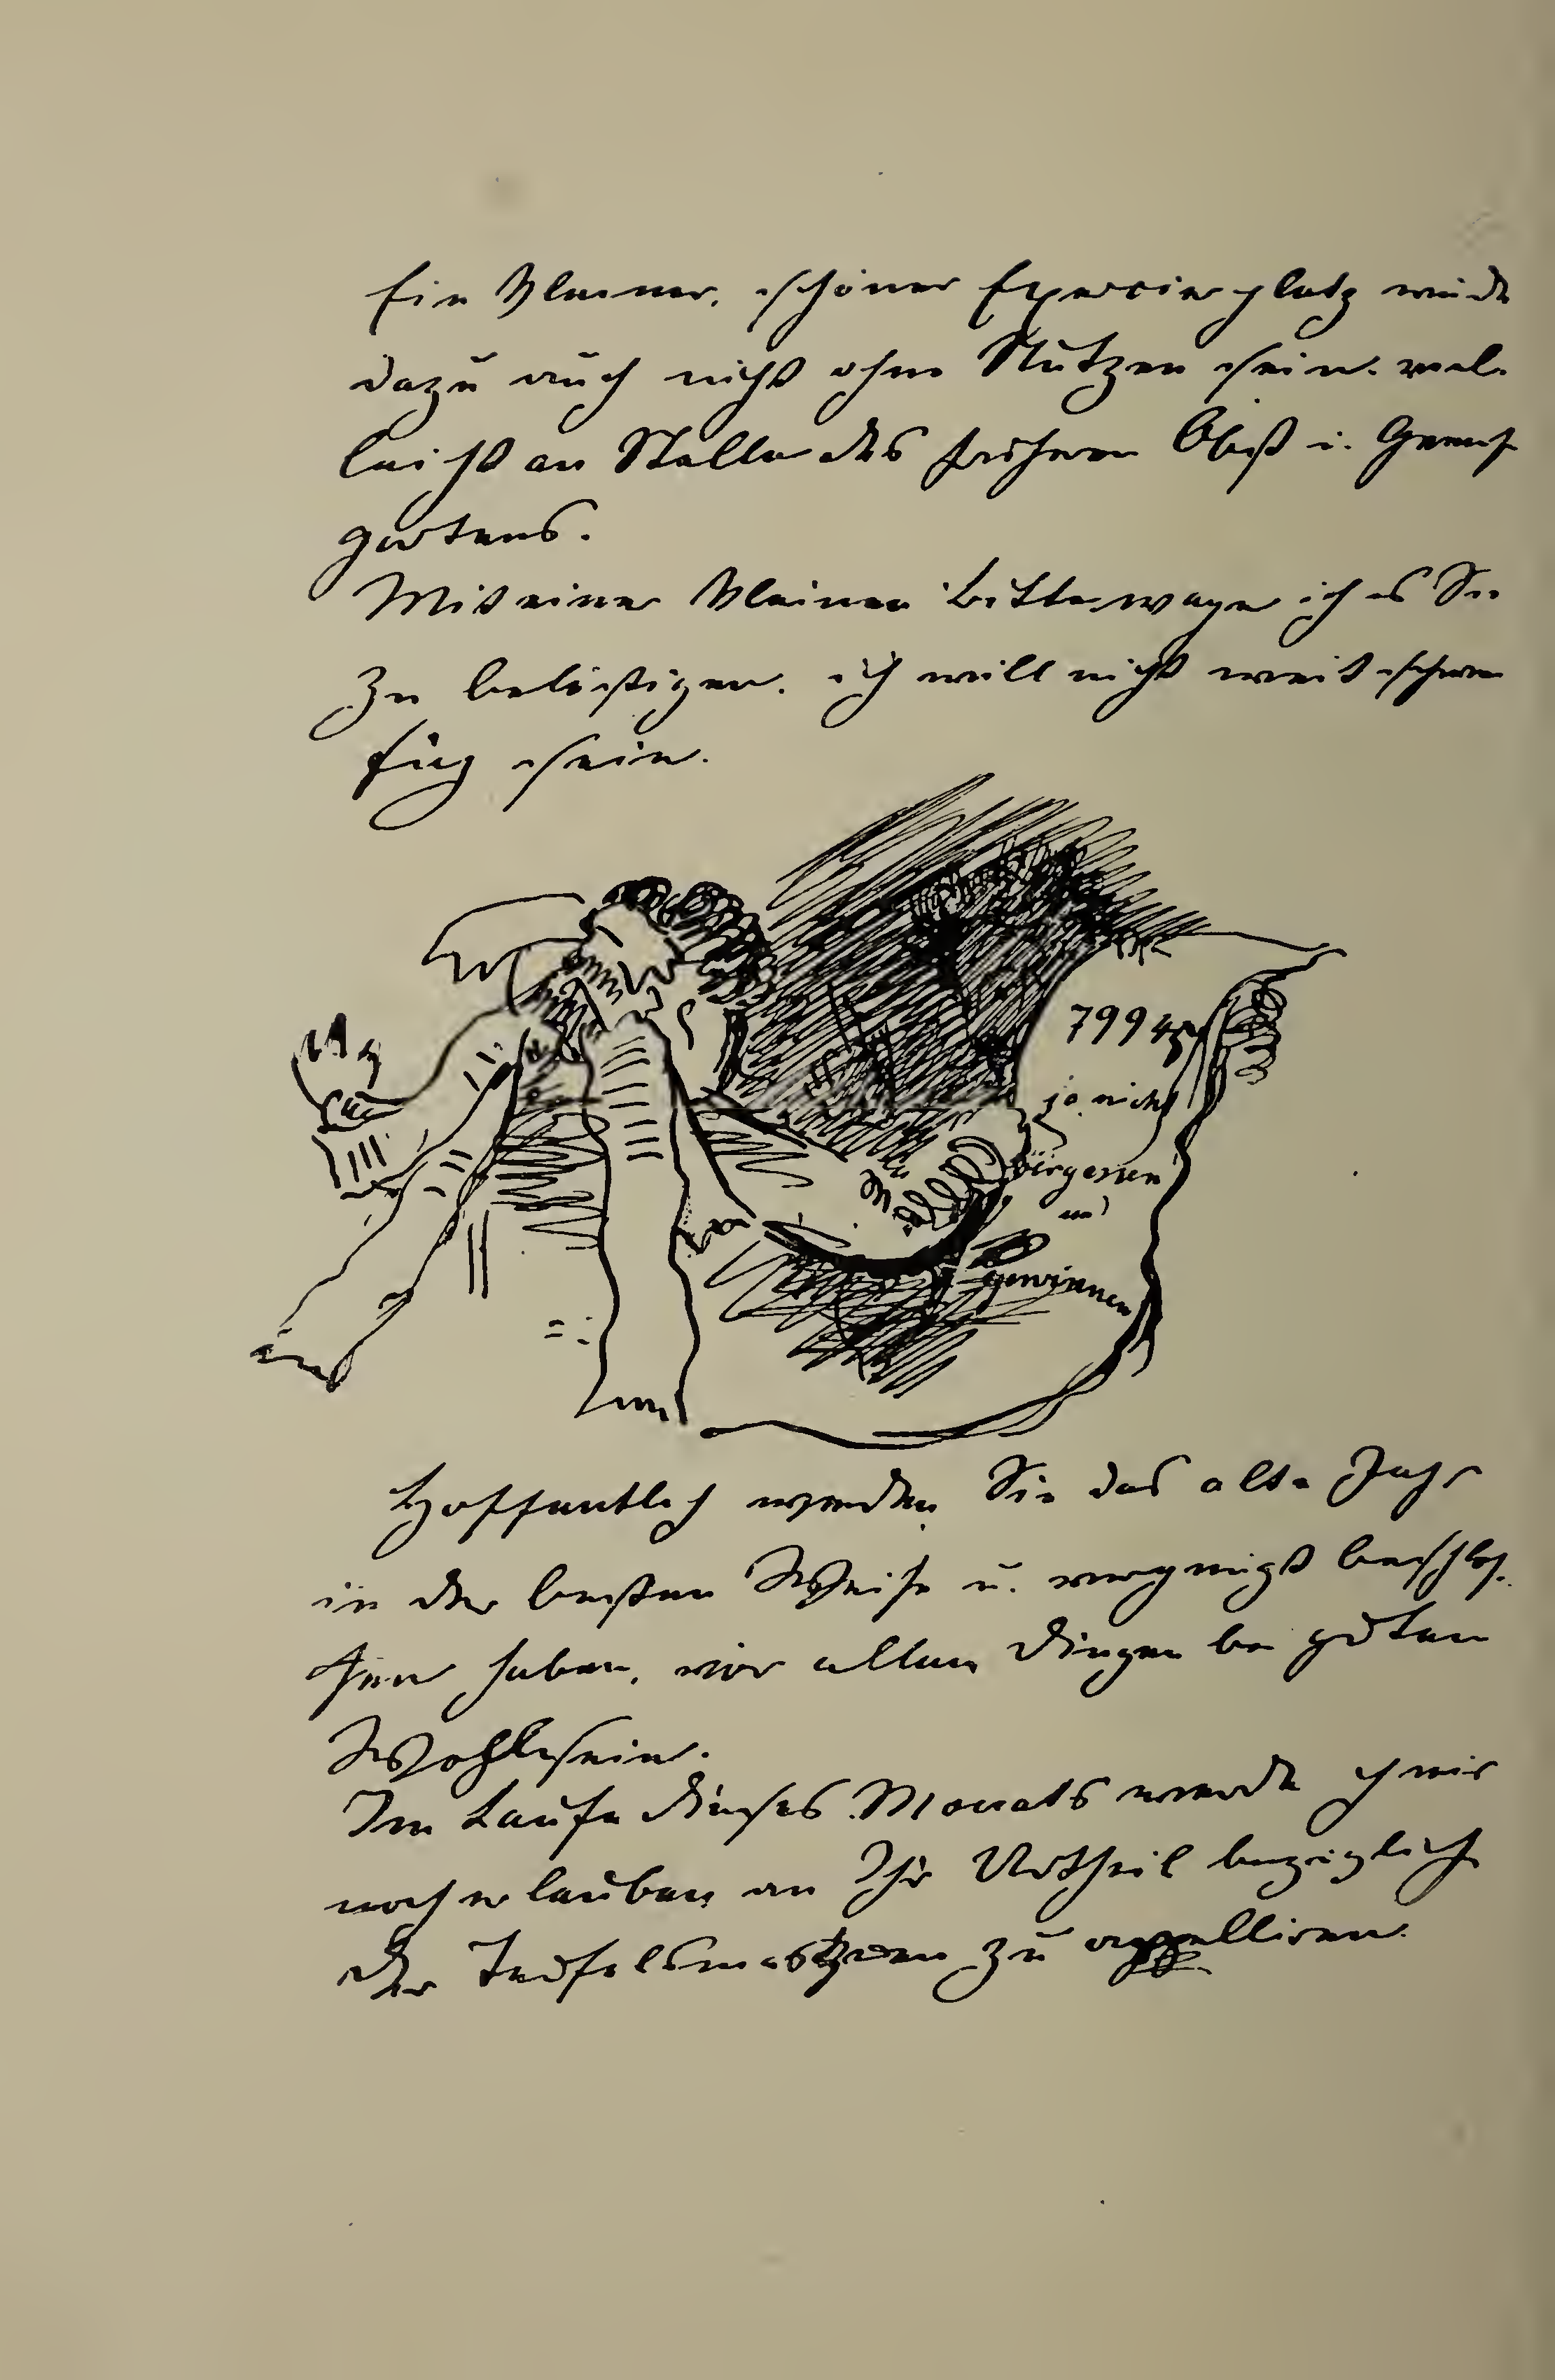 Ein kleiner, schöner Exercierplatz würde
dazu auch nicht ohne Nutzen sein. viel-
leicht an Stelle des früheren Obst u. Gemüs
gartens.
Mit einer kleinen Bitte wage ich es Sie
zu belästigen. ich will nicht weitschwei
fig sein.
7994
ja nicht
vergessen
und
gewinnen
Hoffentlich werden Sie das alte Jahr
in der besten Weise u. vergnügt beschlos-
sen haben, vor allen Dingen bei gutem
Wohlsein.
Im Laufe dieses Monats werde ich mir
noch erlauben an Ihr Urtheil bezüglich
der zu appelliren.